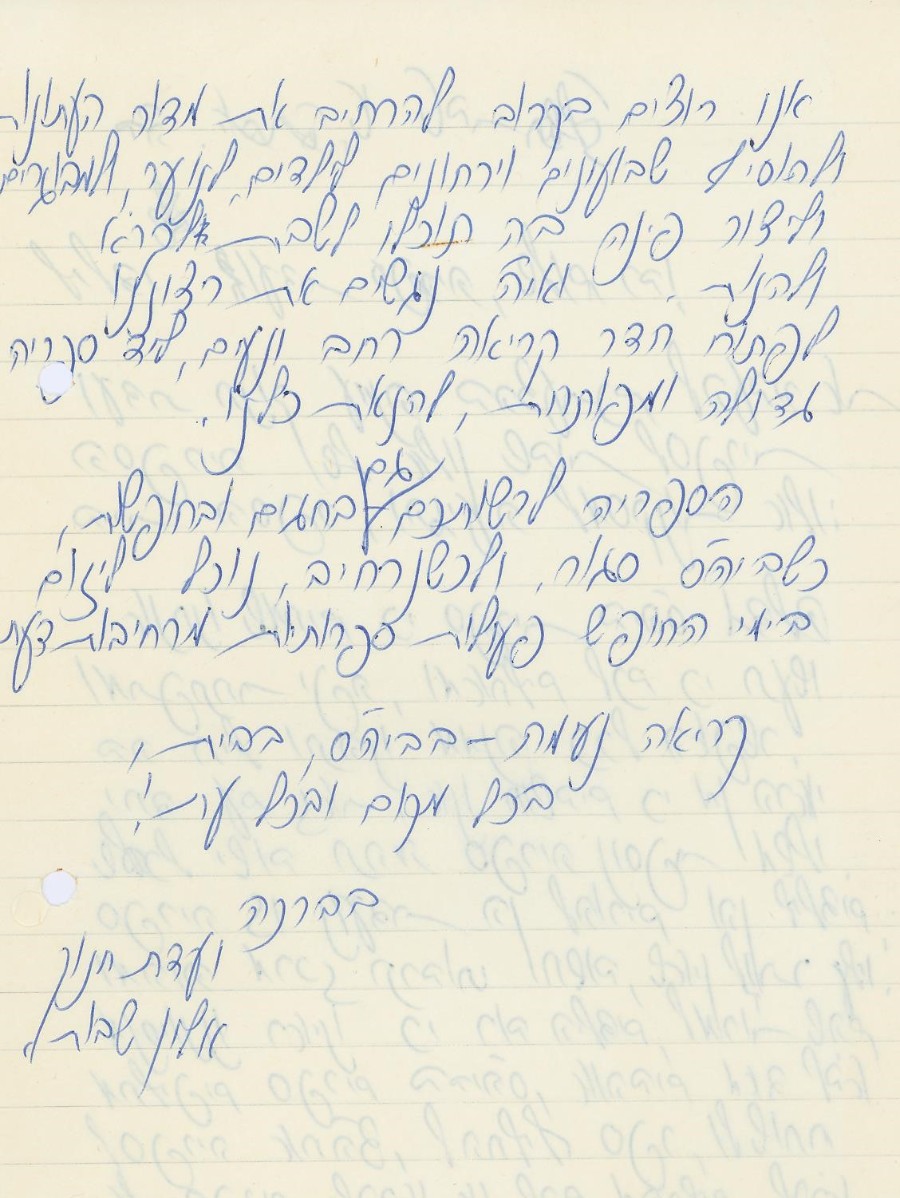 אנו רוצים בקרוב להרחיב את מדור העתונות
ולהוסיף שבועונים וירחונים לילדים, לנוער, ולמבוגרים
וליצור פינה בה תוכלו לשבת לקרא
ולהנות. ואי"ה נגשים את רצוננו
לפתוח חדר קריאה רחב ונעים, ליד ספריה
גדולה ומפוקחת, להנאת כולנו.
גם
הספריה לרשותכם בחגים ובחופשות,
כשביה"ס סגור, ולכשנרחיב, נוכל ליזום
בימי החופש פעולות ספרותיות מרחיבות דעת
קריאה נעימה - בביה"ס, בבית,
בכל מקום ובכל עת!
בברכה
ועדת חנוך
אלון שבות